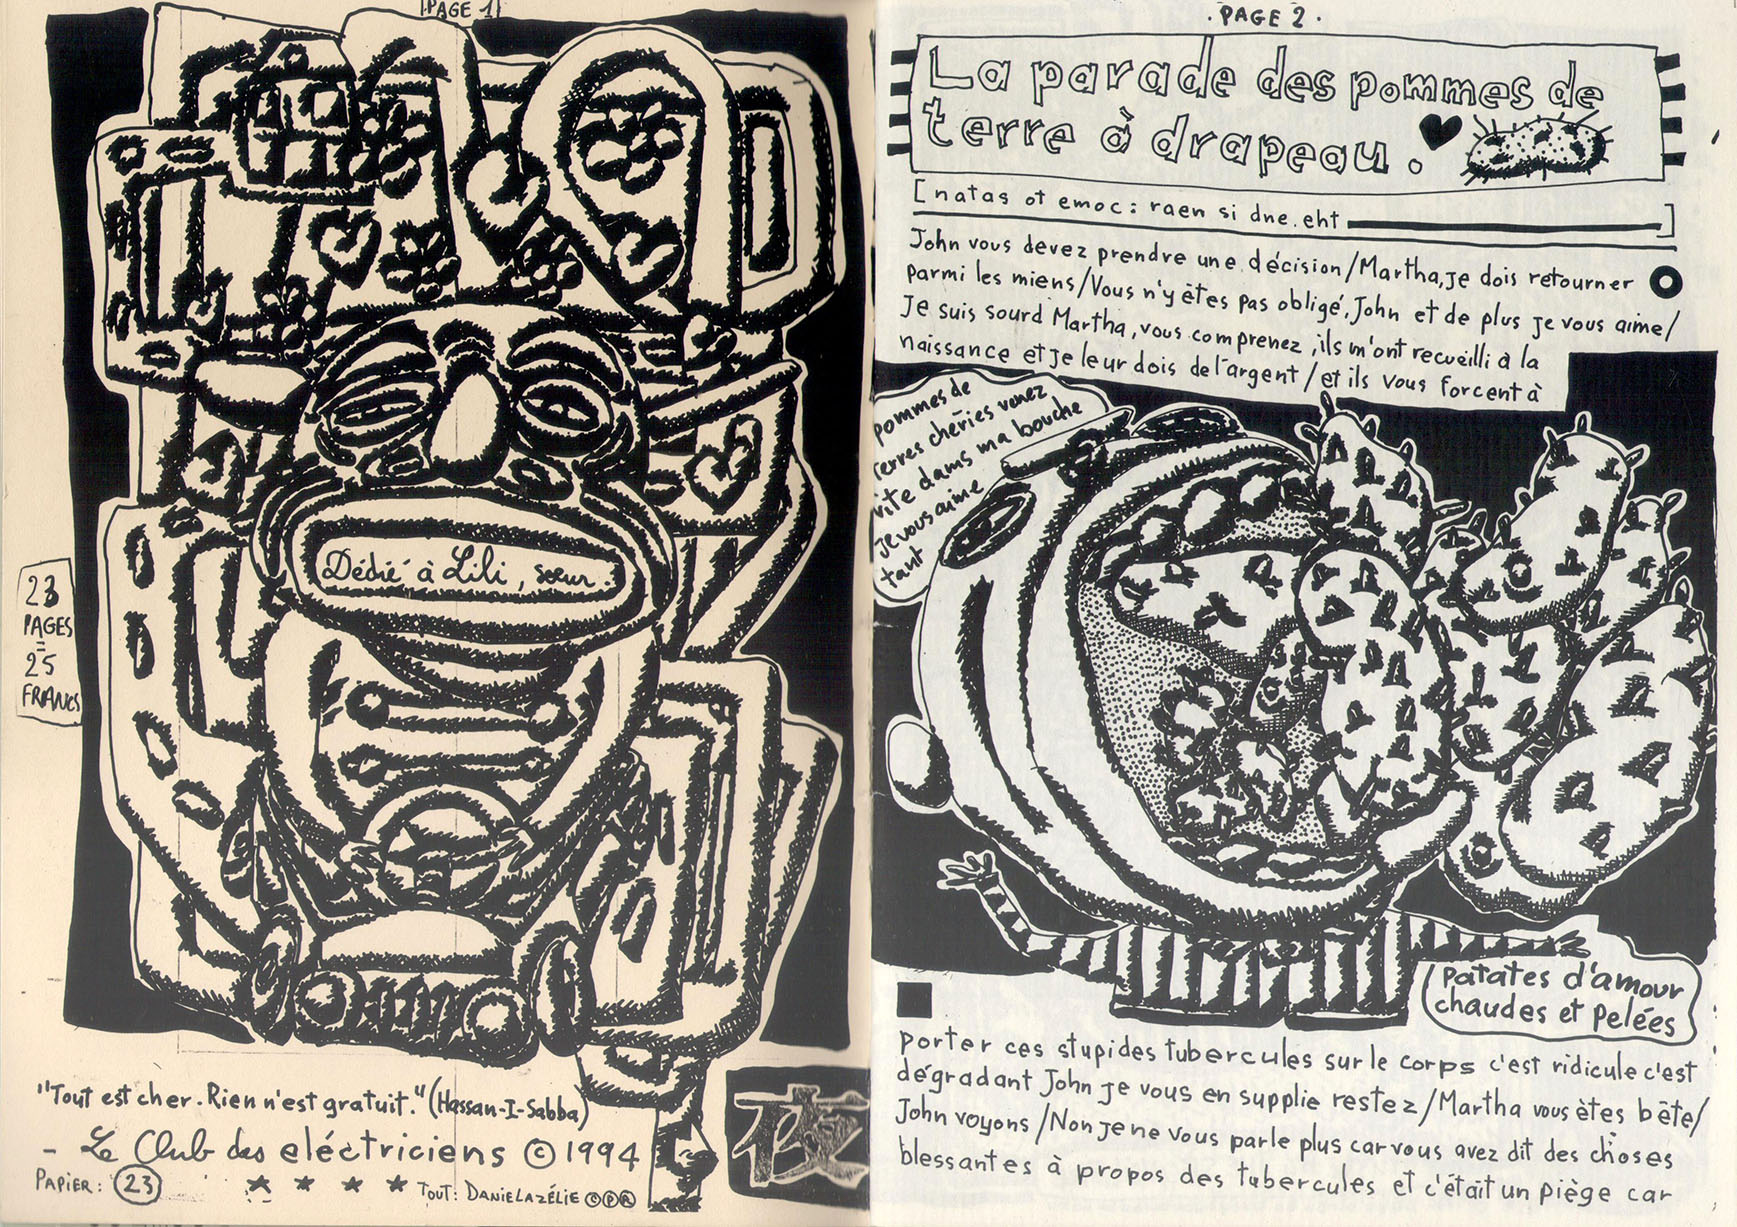 PAGE 1
Dédié à Lili, sœur.
23
PAGES
=
25
FRANCS
"Tout est cher. Rien n'est gratuit." (Hassan-I-Sabba)
- Le Club des eléctriciens © 1994
Papier: 23
★ ★ ★ ★ Tout: DANIELAZÉLIE ©℗®
夜
. PAGE 2 .
La parade des pommes de
terre à drapeau.
[natas ot emoc: raen si dne.eht ]
John vous devez prendre une décision/Martha, je dois retourner
parmi les miens/Vous n'y êtes pas obligé, John et de plus je vous aime/
Je suis sourd Martha, vous comprenez, ils m'ont recueilli à la
naissance et je leur dois de l'argent/et ils vous forcent à
pommes de
terres chéries venez
vite dams ma bouche
je vous aime
tant
patates d'amour
chaudes et pelées
porter ces stupides tubercules sur le corps c'est ridicule c'est
dégradant John je vous en supplie restez/Martha vous ètes bête/
John voyons/Non je ne vous parle plus car vous avez dit des choses
blessantes à propos des tubercules et c'était un piège car